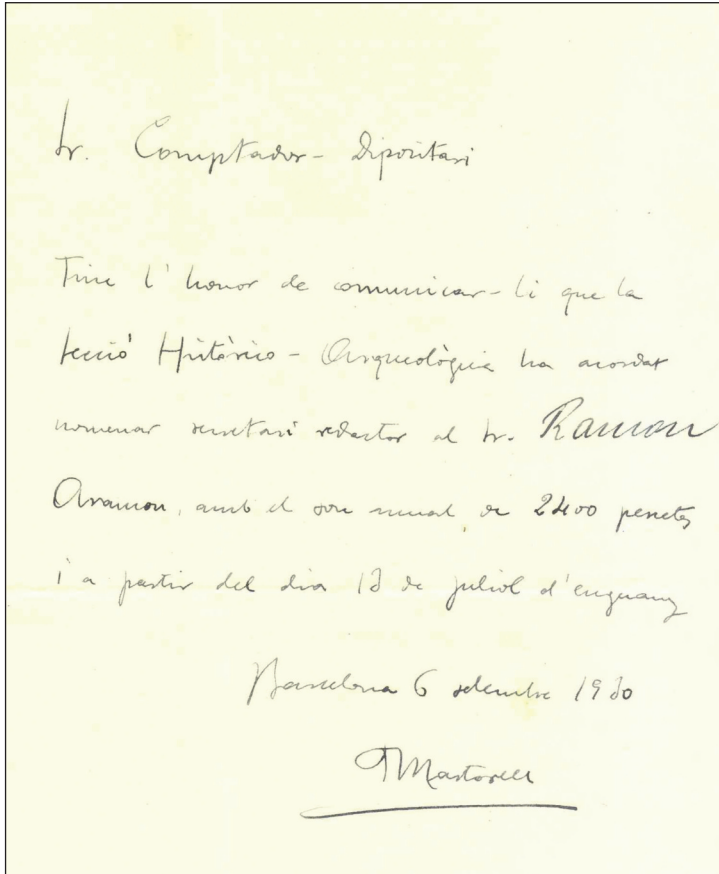 Sr. Comptador-Dipositari
Tinc l'honor de comunicar-li que la
Secció Històrico-Arqueològica ha acordat
nomenar secretari redactor al Sr. Ramon
Aramon, amb el sou anual de 2400 pessetes
i a partir del dia 13 de juliol d'enguany
Barcelona 6 setembre 1930
F Martorell